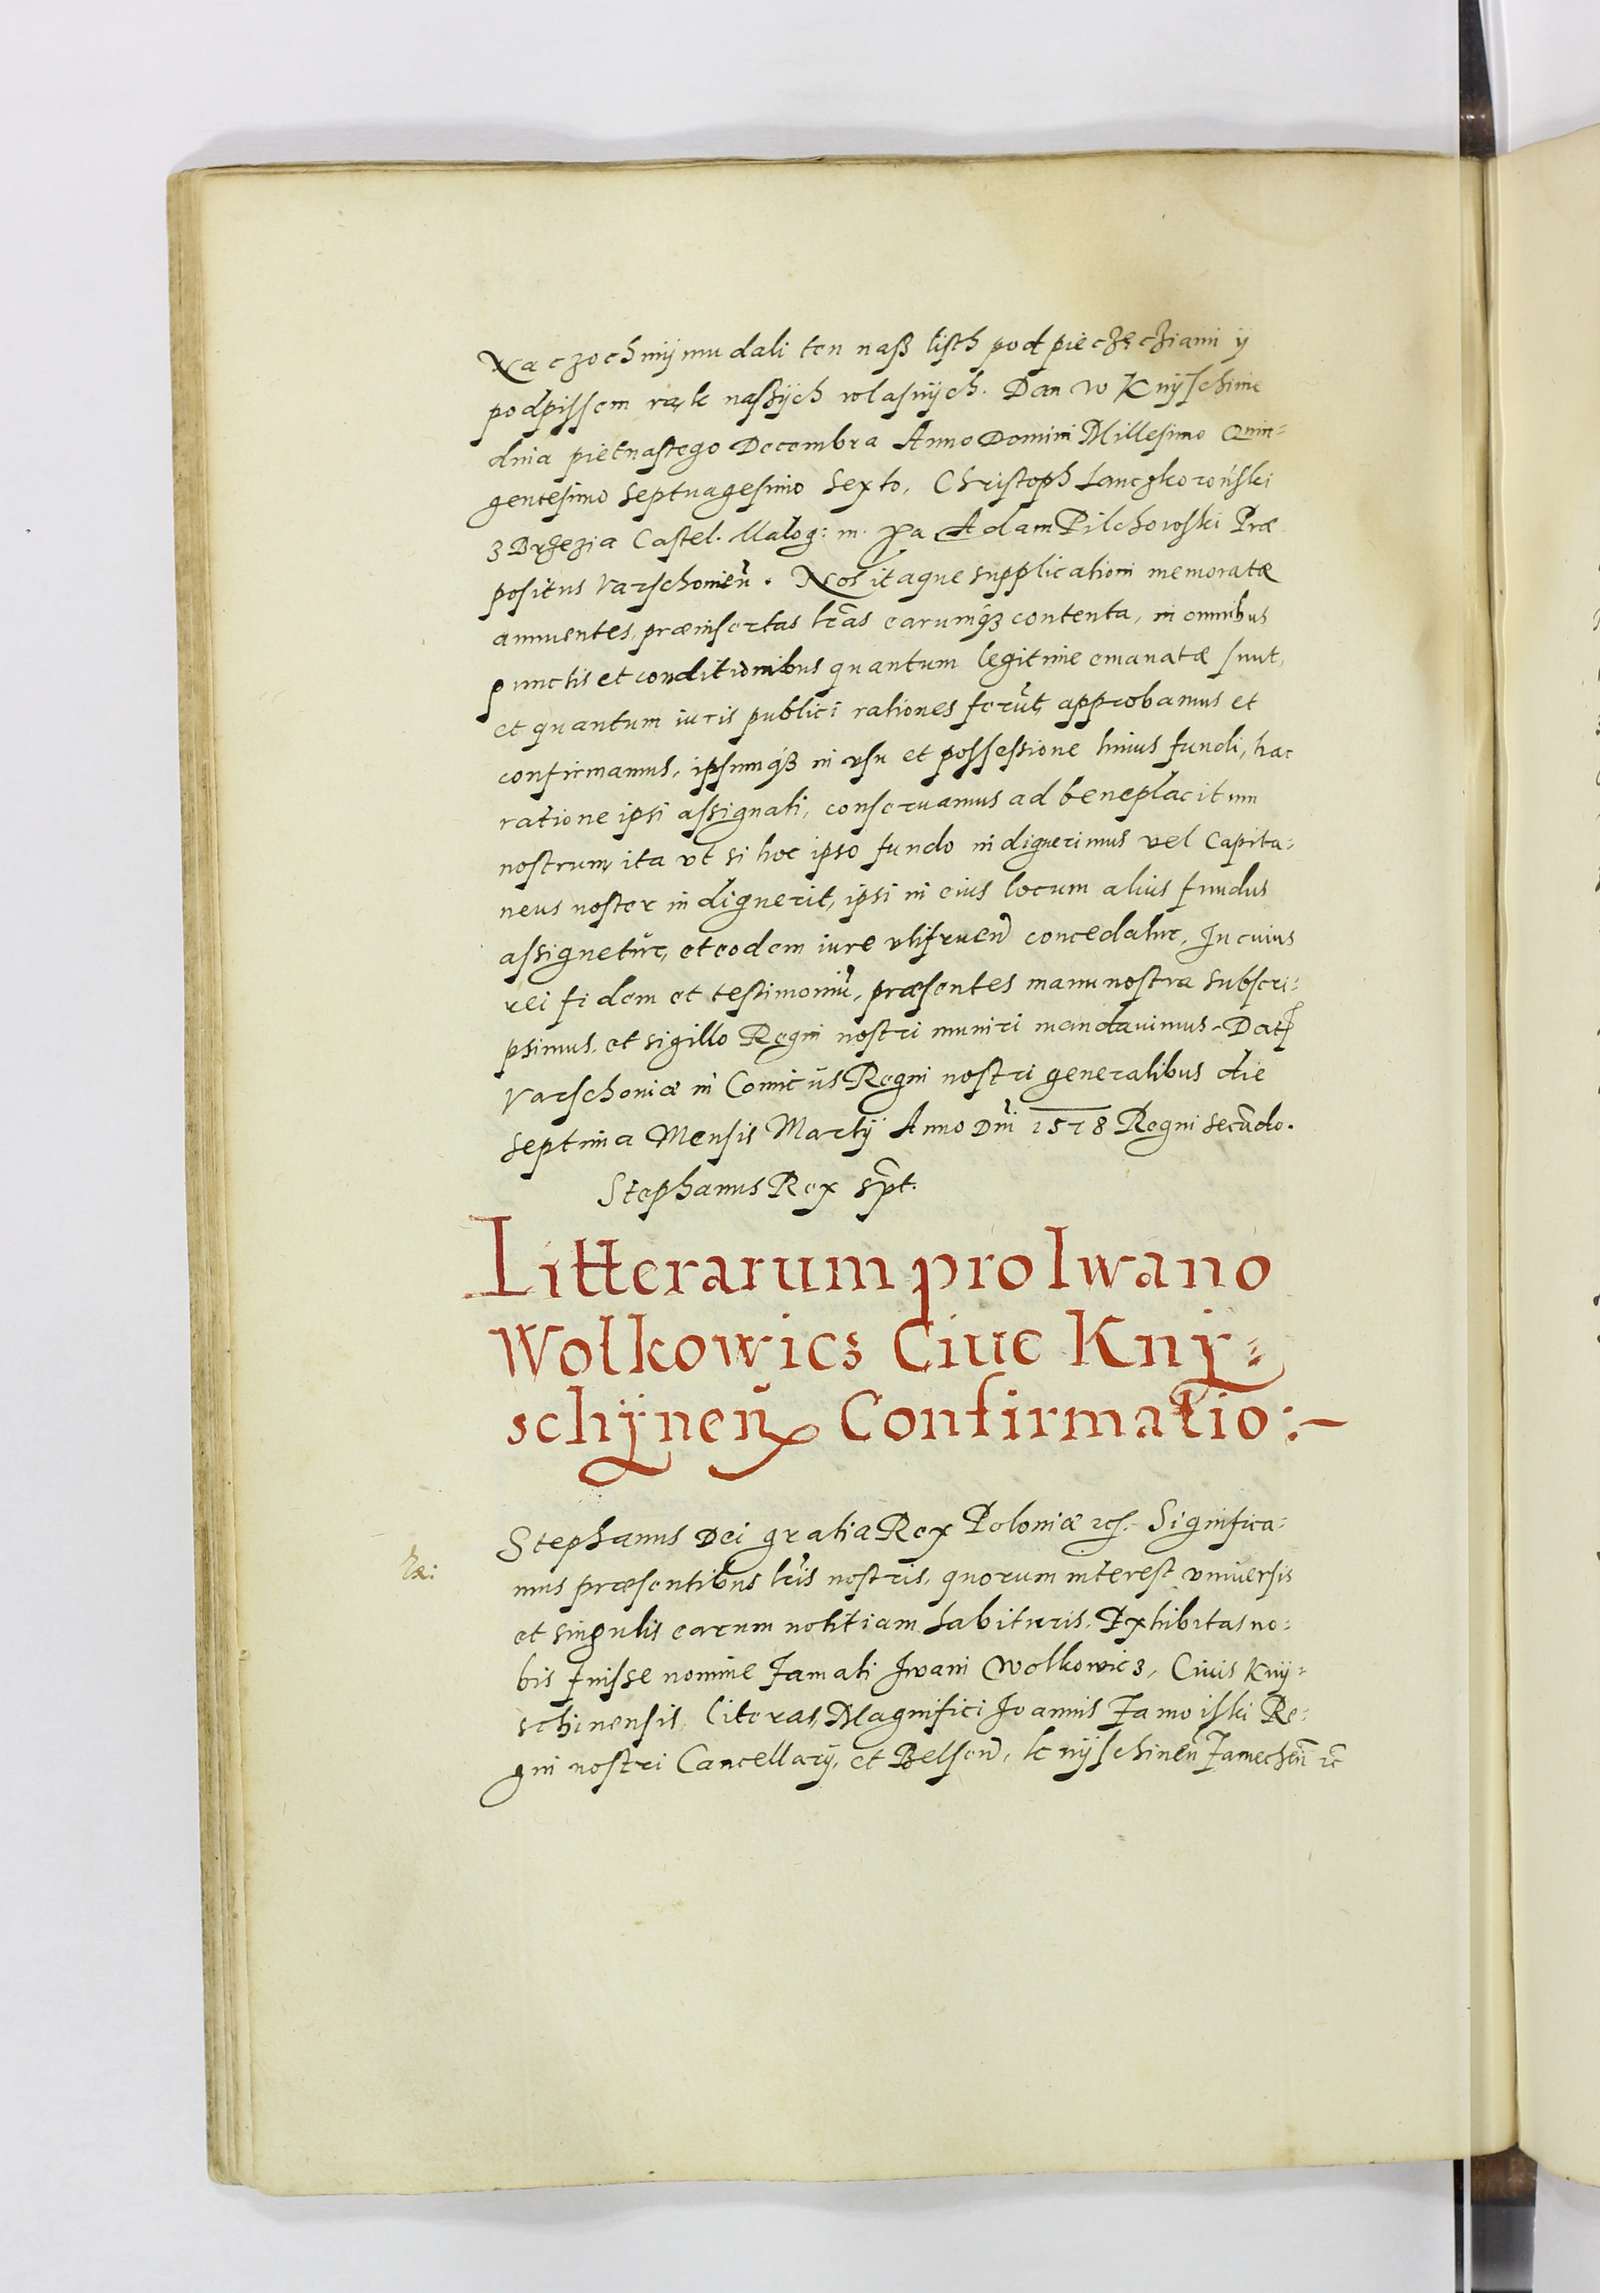 Na czochmÿ mu dali ten naß listh pod pieczęcziami ÿ
podpissem rąk naßÿch wlasnÿch. Dan w Knÿschinie
dnia pietnastego Decembra Anno Domini Millesimo Quin=
gentesimo Septuagesimo Sexto, Christoph Lanczkoroński
z Brzezia Castel. Malog: m. ppa Adam Pilchowski Præ
positus Varschouień. Nos itaque supplicationi memoratæ
annuentes, præinsertas lr̃as earumq́ꝫ contenta, in omnibus
punctis et conditionibus quantum legitime emanatæ sunt,
et quantum iuris publici rationes ferũt, approbamus et
confirmamus, ipsumq́ꝫ in vsu et possessione huius fundi, hac
ratione ipsi assignati, conseruamus ad beneplacitum
nostrum, ita vt si hoc ipso fundo indiguerimus vel Capita=
neus noster indiguerit, ipsi in eius locum alius fundus
assignetur, et eodem iure vtifruen̄ concedatur, In cuius
rei fidem et testimoniũ, præsentes manu nostra subscri=
psimus, et sigillo Regni nostri muniri mandauimus. Dat
Varschouiæ in Comitijs Regni nostri generalibus die
septima Mensis Martÿ Anno Dni 1578 Regni secũdo.
Stephanus Rex spt.
Litterarum pro Iwano
Wolkowics Ciue Knÿ=
schÿneñ Confirmatio:—
Stephanus Dei gratia Rex Poloniæ etc. Significa=
mus præsentibus lr̃is nostris, quorum interest vniuersis
et singulis earum notitiam habituris, Exhibitas no=
bis fuisse nomine Famati Iwani Wolkowicz, Ciuis Knÿ=
schinensis, literas Magnifici Joannis Zamoiski Re=
gni nostri Cancellarÿ, et Belseñ, Knÿschineñ Zamecheñ etc